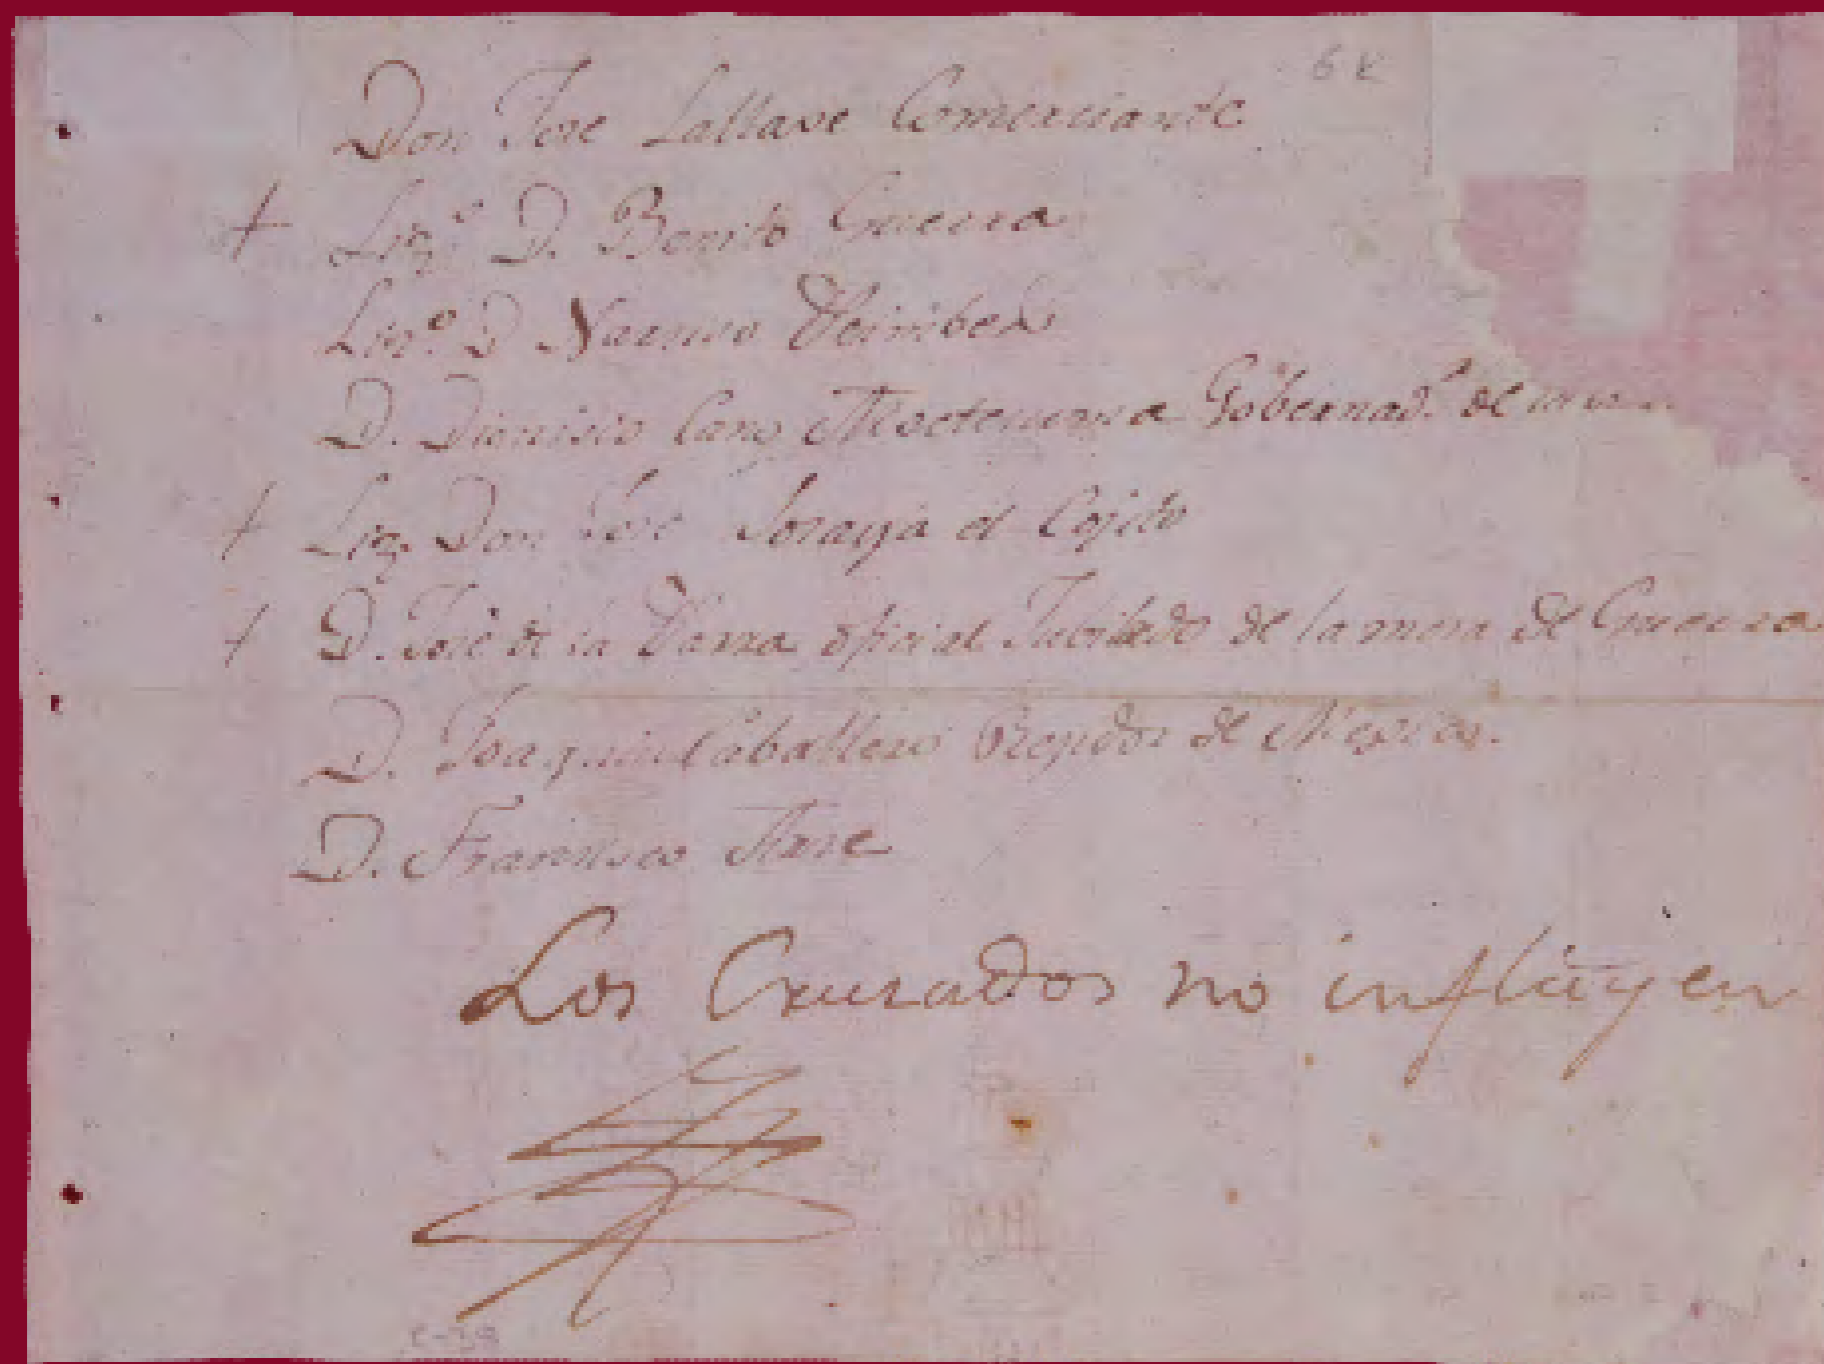 6 K
Don Jose Lallave Comerciante
+ Liz.º D. Benito Guerra
Liz.º D Narciso
D. Dionisio Cano Moctezuma Gobernad.r de
+ Liz. Don Jose el Cojito
+ D. José de la oficial Jubilado de la mesa de Guerra
D. Joaquin Caballero Regidor de Mexico.
D. Francisco Arce
Los Cruzados no influyen